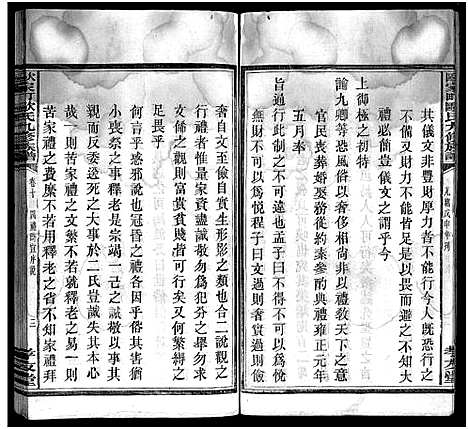 其儀文非豐財厚力者不能行今人既恐行之
不備又以財力不能皆足是以畏阻不復不知大
禮簡易豈儀文之謂乎今
上御極之初特
諭九卿等恐風俗以奢侈相尚非以禮教天下之意
官民喪葬婚娶約築參酌典禮雍正元年
五月奉
旨通行此制之不可違也孟子曰不得不可以為悅
無財不可以為悅程子曰文過則奢質過則儉
奢自文至儉自實生形影之類也合二說觀之
行禮者惟量家資盡誠敬勿為犯分之
文飾之觀則富貴貧賤皆可行矣又何繁縟之
足畏乎
何言乎惑邪說也冠昏之禮各因乎俗其皆信
小喪祭之事釋老是宗竭一己之誠敬以事其
二而反委送死之大事於二氏豈誠失其本心
哉無亦苦家禮之難故樂釋老之易一則
苦家禮之文繁不若就釋老之省不知家禮拜
卷十
四禮
三
孝友堂